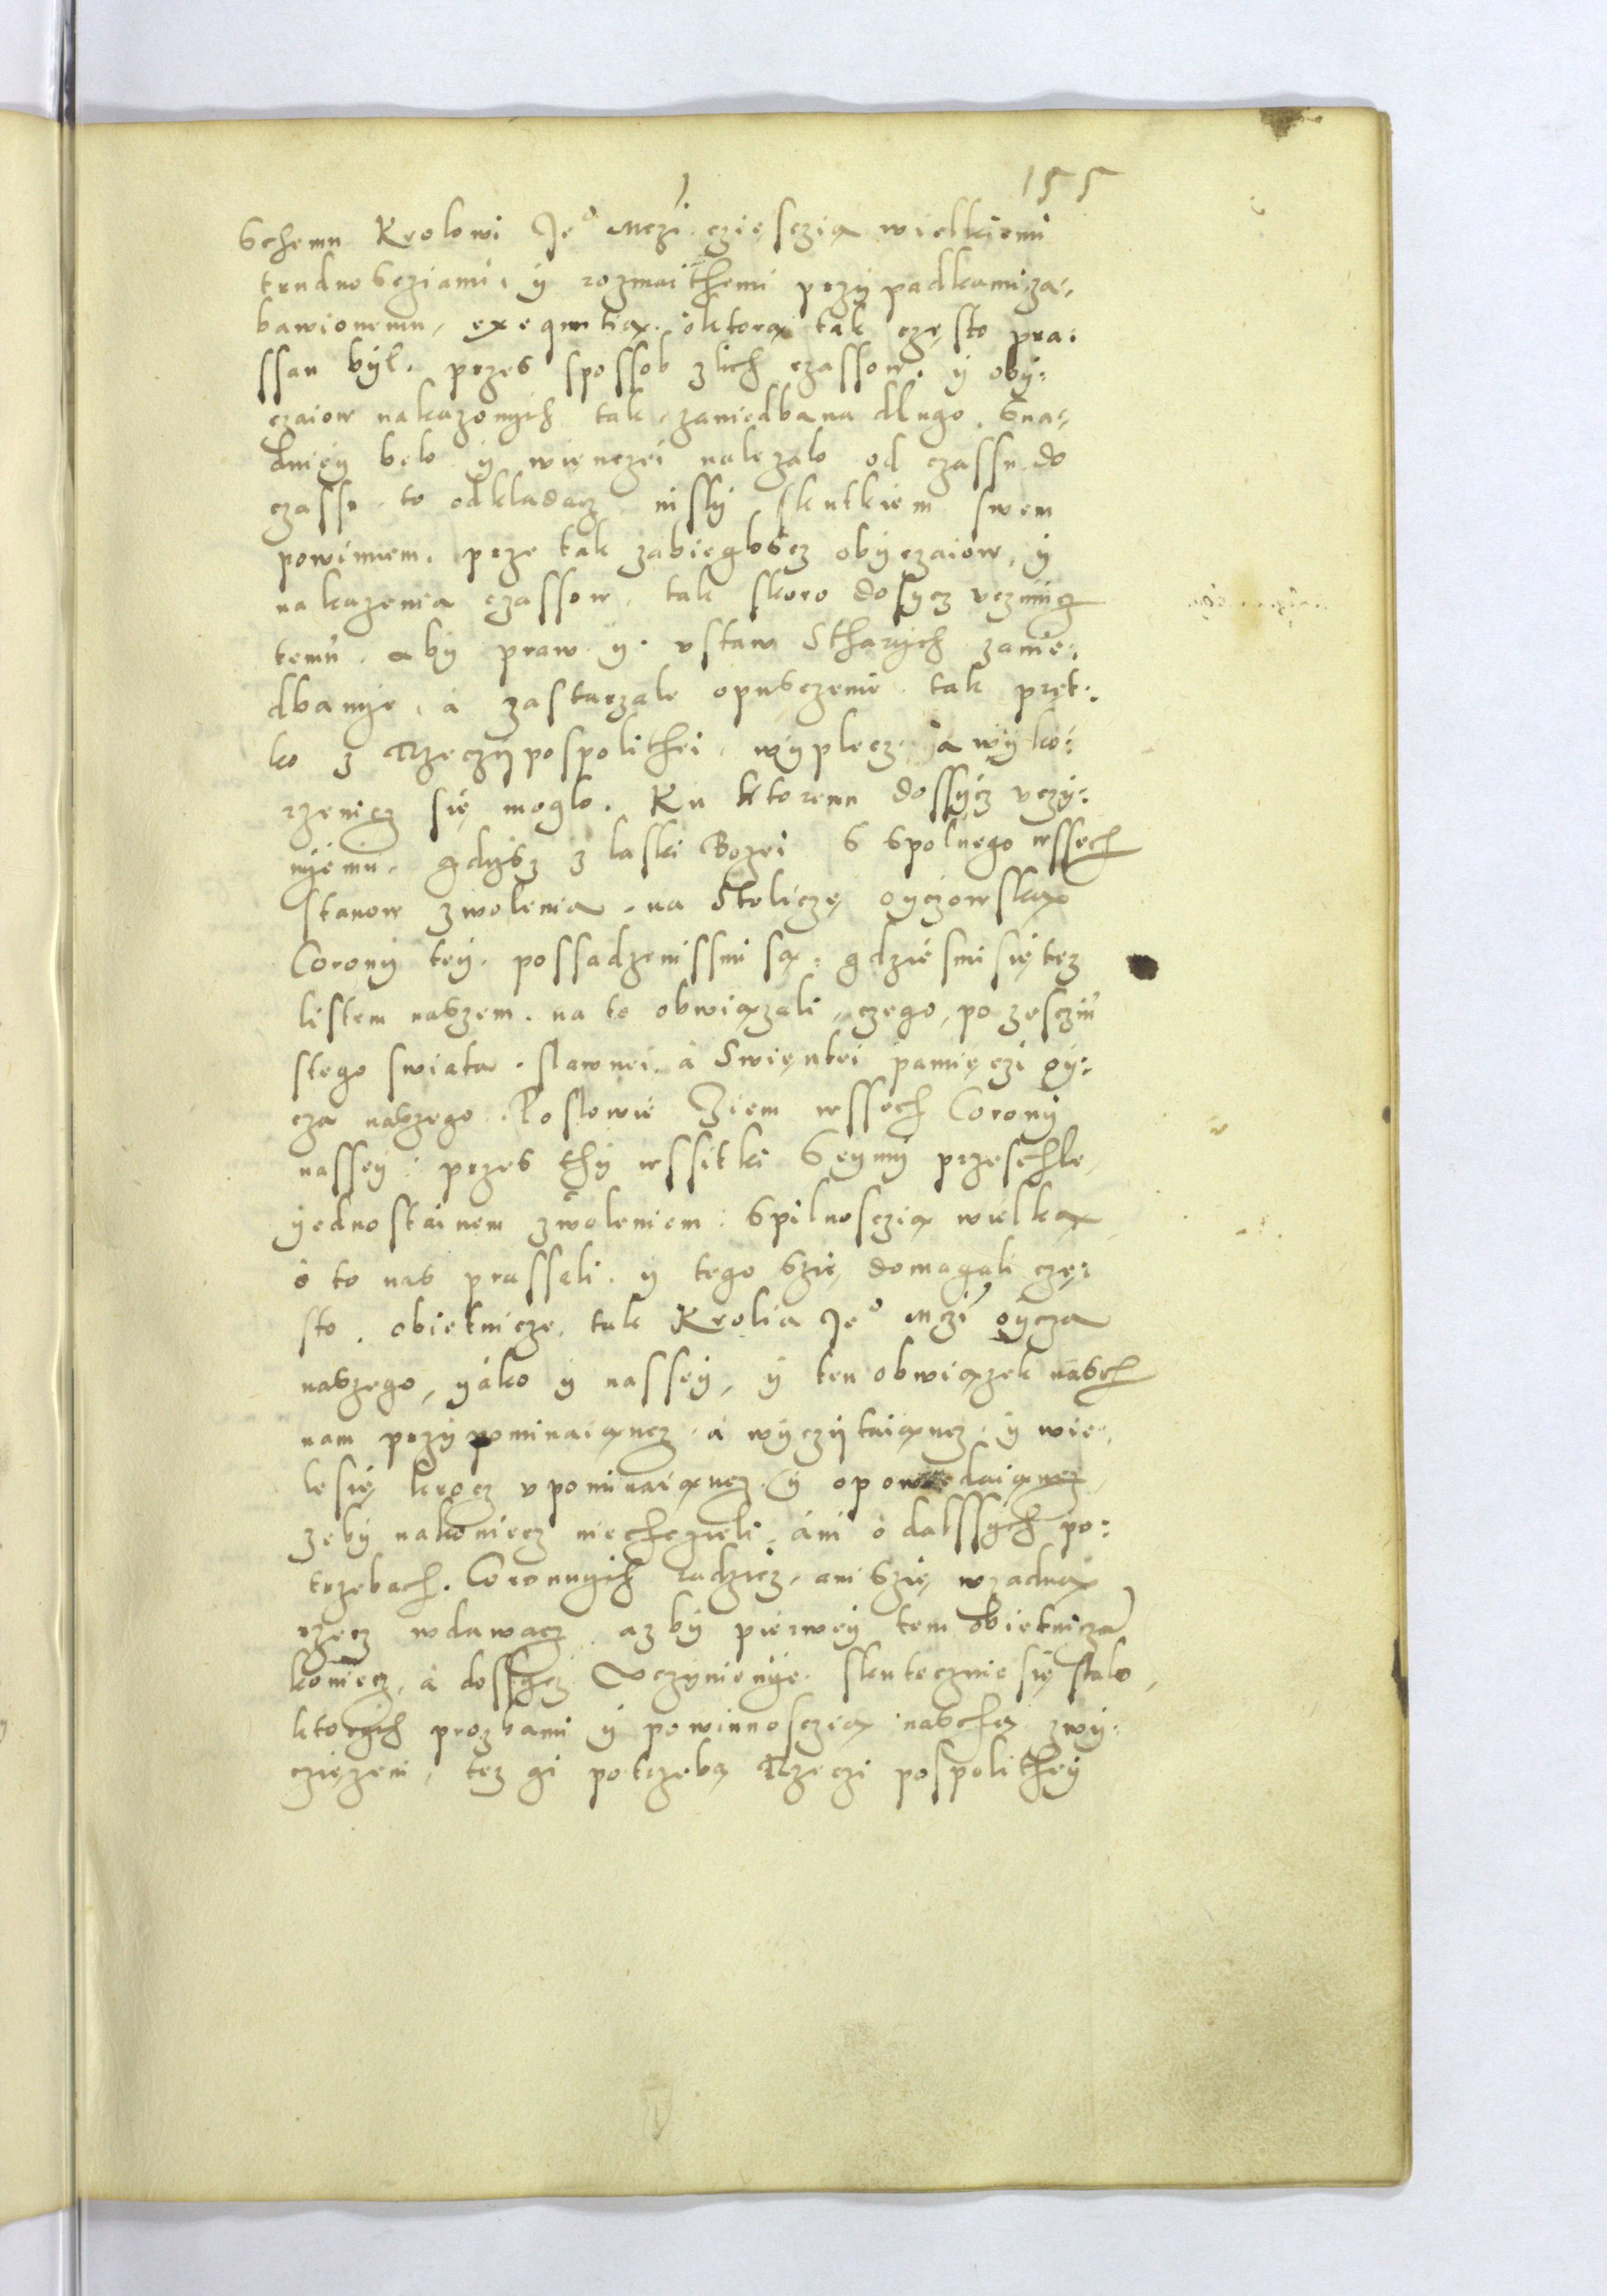 155
schemu Krolowi Je° Mczi. częsczią wielkiemi
trudnosczami, ÿ rozmaithemi przÿpadkami za=
bawionemu, exequutią. oktorą tak często pra=
ssan bÿl. przes spossob zlich czassow. ÿ obÿ=
czaiow nakazonÿch tak zaniedbana dlugo. sna=
dnieÿ belo ÿ wienczei nalezalo od czassu do
czassu to odkladacz nisly skutkiem swem
powinnem. prze tak zabieglosc obÿczaiow, ÿ
nakazenia czassow. tak skoro dosycz vczinicz
temu. abÿ praw ÿ vstaw Stharÿch zanie=
dbanÿe, a zastarzale opusczenie tak pręt=
ko z Rzeczÿpospolithei, wÿplecz a wÿko=
rzenicz się moglo. Ku ktoremu dossÿcz vczÿ=
nÿeniu, gdÿsz z laski Bozei s spolnego wssech
stanow zwolenia, na Stoliczę oÿczowską
Coronÿ teÿ. possadzenissmi są: gdziesmi się tez
listem naszem. na to obwiązali, czego, po zesczu
stego swiata. slawnei a Swiętei pamięczi oÿ=
cza naszego. Poslowie Ziem wssech Coronÿ
nasseÿ: przes thÿ wssitki Seÿmÿ przeschle
ÿednostainem zwoleniem: spilnosczią wielką
o to nas prassali. ÿ tego szię domagali czę=
sto. obietnicze, tak Krolia Je° Mczi oÿcza
naszego, ÿako ÿ nasseÿ, ÿ ten obwiązek nasch
nam przÿpominaiącz. a wÿczÿtaiącz. ÿ wie=
le się krocz vpominaiącz. ÿ opowiedaiącz,
zebÿ nakoniecz niechczieli, ani o dalssÿch po=
trzebach. Coronnÿch radzicz, ani szię wzadną
rzecz wdawacz. az bÿ pierweÿ tem obietnicza
koniecz, a dossÿcz Vczÿnienÿe. skutecznie się stalo,
ktorÿch prozbami ÿ powinnosczią naschą zwÿ=
cziężeni, tez gi potrzebą Rzeczi pospolitheÿ